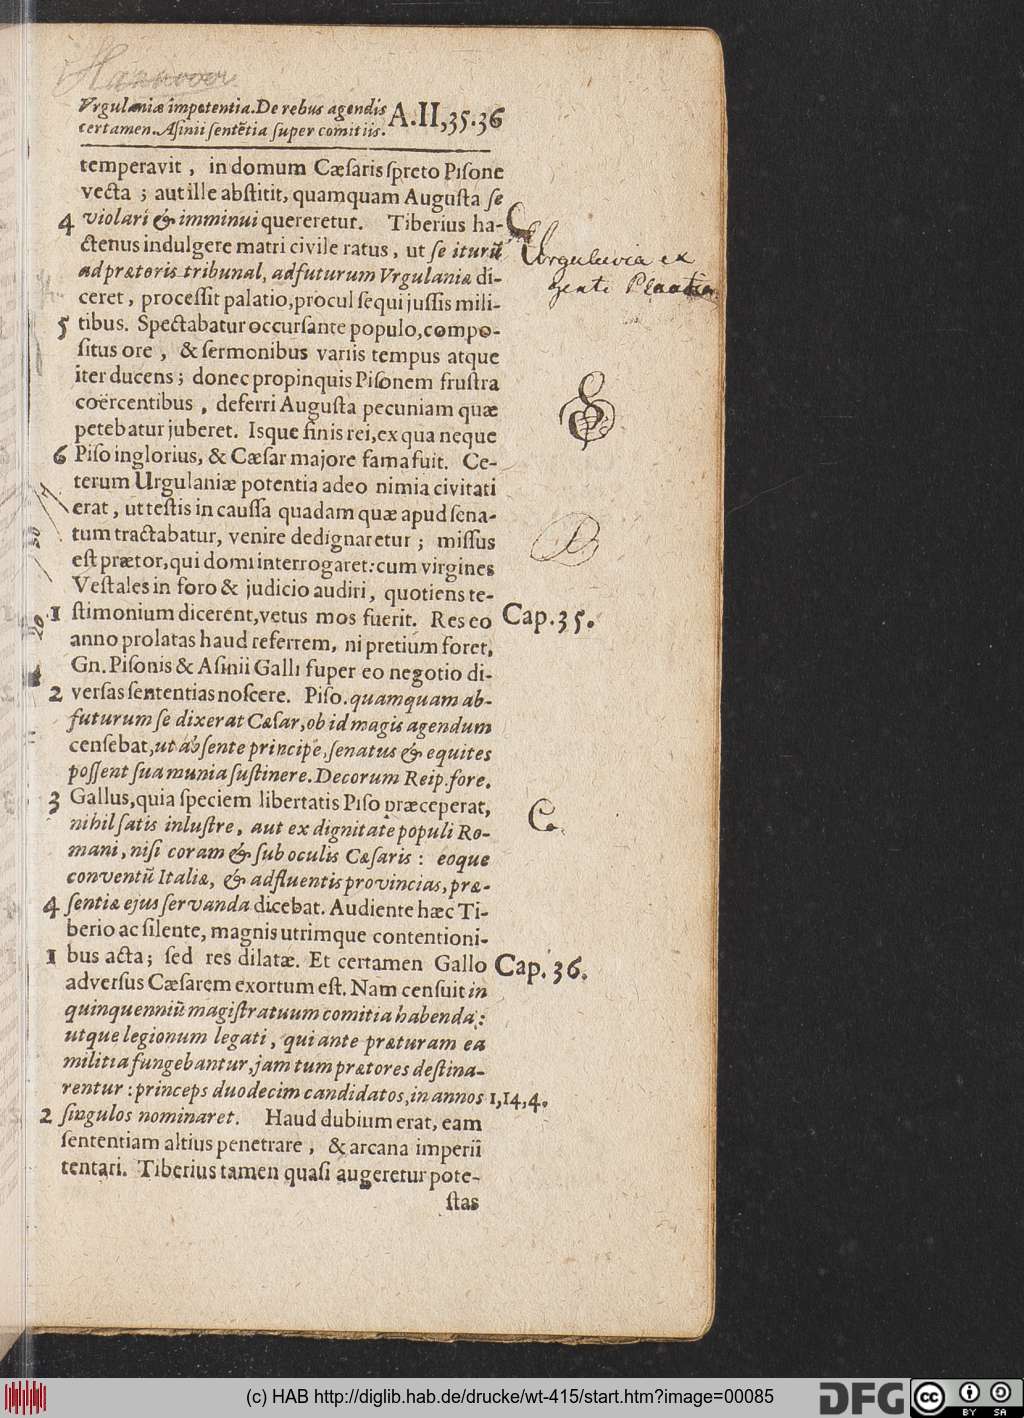 Hannover
Vrgulaniæ impotentia. De rebus agendis
certamen. Aſinii ſentẽtia ſuper comitiis.
A.II,35.36
temperavit, in domum Cæſaris ſpreto Piſone
vecta; aut ille abſtitit, quamquam Auguſta ſe
4 violari & imminui quereretur. Tiberius ha-
ctenus indulgere matri civile ratus, ut ſe iturũ
ad prætoris tribunal, adfuturum Vrgulaniæ di-
ceret, proceſſit palatio, procul ſequi juſſis mili-
5 tibus. Spectabatur occurſante populo, compo-
ſitus ore, & ſermonibus variis tempus atque
iter ducens; donec propinquis Piſonem fruſtra
coërcentibus, deferri Auguſta pecuniam quæ
petebatur juberet. Isque finis rei, ex qua neque
6 Piſo inglorius, & Cæſar majore fama fuit. Ce-
terum Urgulaniæ potentia adeo nimia civitati
erat, ut teſtis in cauſſa quadam quæ apud ſena-
tum tractabatur, venire dedignaretur; miſſus
eſt prætor, qui domi interrogaret: cum virgines
Veſtales in foro & judicio audiri, quotiens te-
1 ſtimonium dicerent, vetus mos fuerit. Res eo
anno prolatas haud referrem, ni pretium foret,
Gn. Piſonis & Aſinii Galli ſuper eo negotio di-
2 verſas ſententias noſcere. Piſo. quamquam ab-
futurum ſe dixerat Cæſar, ob id magis agendum
cenſebat, ut abſente principe, ſenatus & equites
poſſent ſua munia ſuſtinere. Decorum Reip. fore.
3 Gallus, quia ſpeciem libertatis Piſo præceperat,
nihil ſatis inluſtre, aut ex dignitate populi Ro-
mani, niſi coram & ſub oculis Cæſaris: eoque
conventũ Italiæ, & adfluentis provincias, præ-
4 ſentiæ ejus ſervanda dicebat. Audiente hæc Ti-
berio ac ſilente, magnis utrimque contentioni-
1 bus acta; ſed res dilatæ. Et certamen Gallo
adverſus Cæſarem exortum eſt. Nam cenſuit in
quinquenniũ magiſtratuum comitia habenda:
utque legionum legati, qui ante præturam ea
militia fungebantur, jam tum prætores deſtina-
rentur: princeps duodecim candidatos, in annos
2 ſingulos nominaret. Haud dubium erat, eam
ſententiam altius penetrare, & arcana imperii
tentari. Tiberius tamen quaſi augeretur pote-
ſtas
Urgulania ex
gente Plautia
Cap. 35.
Cap. 36.
1,14,4.
(c) HAB http://diglib.hab.de/drucke/wt-415/start.htm?image=00085
DFG
cc BY SA